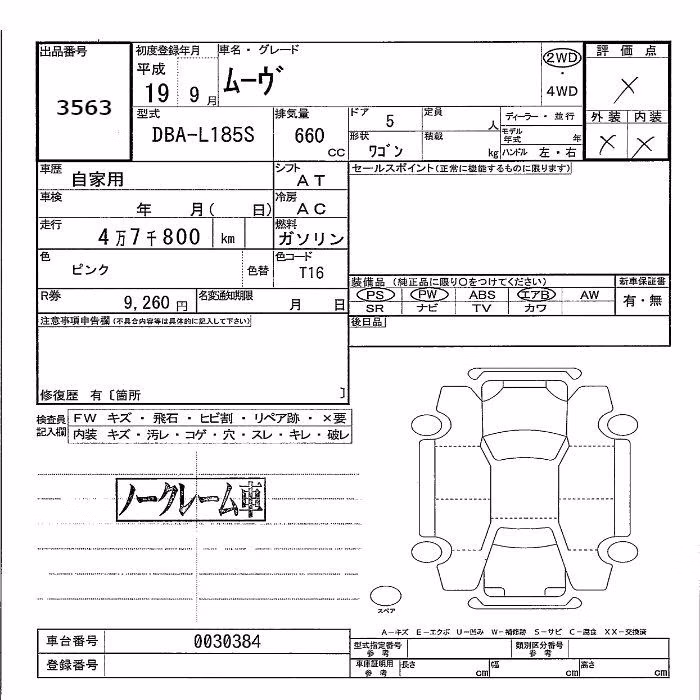 出品番号
3563
初度登録年月
平成
19 9 月
車名・グレード
ムーヴ
2WD
・
4WD
評価点
×
外装 内装
× ×
型式
DBA-L185S
排気量
660
CC
ドア
5
定員
人
形状
ワゴン
積載
kg
ディーラー・並行
モデル年式 年
ハンドル 左・右
車歴
自家用
シフト
AT
車検
年 月( 日)
冷房
AC
走行
4万7千800 km
燃料
ガソリン
色
ピンク
色替
色コード
T16
R券
9,260 円
名変通知期限
月 日
セールスポイント(正常に機能するものに限ります)
装備品 (純正品に限り○をつけてください)
新車保証書
PS PW ABS エアB AW
SR ナビ TV カワ
有・無
後日品
注意事項申告欄(不具合内容等は具体的に記入して下さい)
修復歴 有〔箇所 〕
検査員記入欄
FW キズ・飛石・ヒビ割・リペア跡・×要
内装 キズ・汚レ・コゲ・穴・スレ・キレ・破レ
ノークレーム車
スペア
A-キズ E-エクボ U-凹み W-補修跡 S-サビ C-腐食 XX-交換済
車台番号
0030384
登録番号
型式指定番号
参考
類別区分番号
参考
車庫証明用
参考
長さ cm
幅 cm
高さ cm